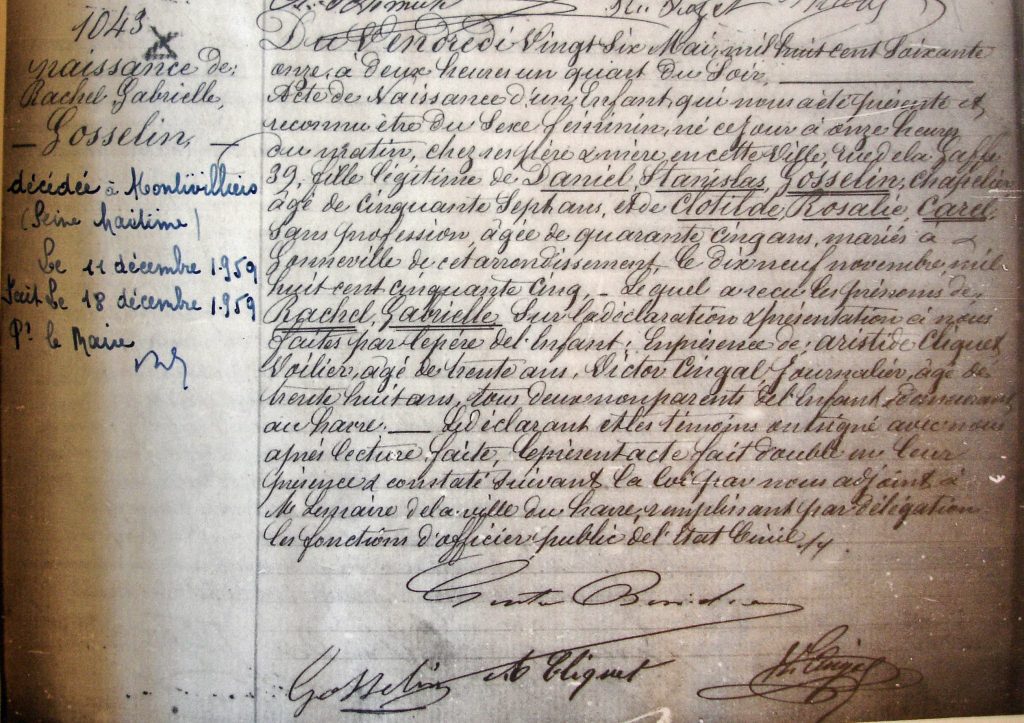 1043
naissance de:
Rachel Gabrielle,
Gosselin,
décédée à Montivilliers
(Seine Maritime)
Le 11 décembre 1959
Fait Le 18 décembre 1959
Pr le Maire
Du Vendredi Vingt Six Mai, mil huit cent soixante
onze, à deux heures un quart du Soir,
Acte de Naissance d'un Enfant qui nous a été présenté et
reconnu être du Sexe féminin, né ce jour à onze heures
du matin, chez ses père & mère, en cette Ville, rue de la Gaffe
39, fille légitime de Daniel, Stanislas, Gosselin, chapelier
âgé de cinquante Sept ans, et de Clotilde, Rosalie, Carel,
Sans profession, âgée de quarante cinq ans, mariés à
Gonneville de cet arrondissement, le dix neuf novembre, mil
huit cent cinquante cinq, _ Lequel a reçu les prénoms de
Rachel, Gabrielle, Sur la déclaration & présentation à nous
faites par le père de l'Enfant; En présence de: Aristide Cliquet
Voilier, âgé de trente ans, Victor Cingal, Journalier, âgé de
trente huit ans, tous deux non parents de l'Enfant & demeurant
au havre. _ Le déclarant et les témoins ont signé avec nous
après lecture faite, le présent acte fait double en leur
présence & constaté suivant la loi par nous adjoint à
M. le maire de la ville du havre, remplissant par délégation
les fonctions d'officier public de l'Etat Civil.
Gosselin A Cliquet